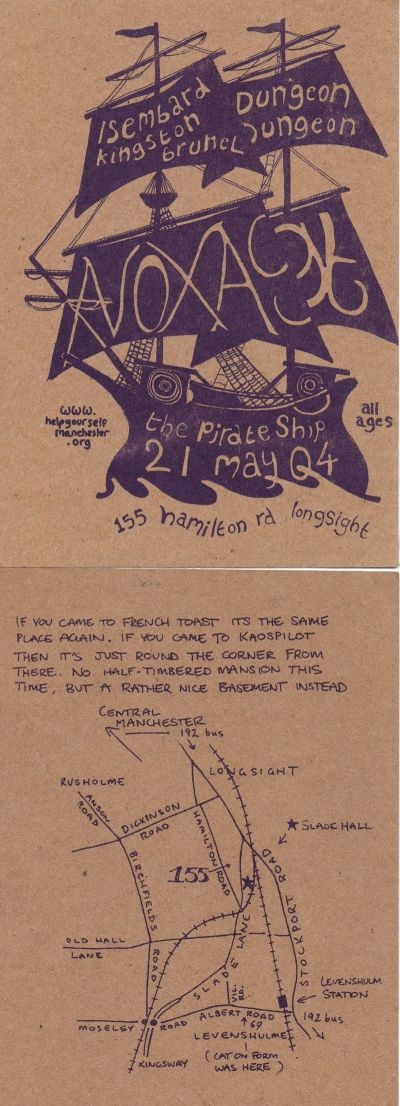 Isembard
kingston
brunel
Dungeon
Jungeon
NOXAGT
www.
helpyourself
manchester
.org
all
ages
the Pirate Ship
21 may 04
155 hamilton rd longsight
IF YOU CAME TO FRENCH TOAST ITS THE SAME
PLACE AGAIN. IF YOU CAME TO KAOSPILOT
THEN IT'S JUST ROUND THE CORNER FROM
THERE. NO HALF-TIMBERED MANSION THIS
TIME, BUT A RATHER NICE BASEMENT INSTEAD
CENTRAL
MANCHESTER
192 bus
LONGSIGHT
RUSHOLME
ANSON
ROAD
DICKENSON
ROAD
HAMILTON ROAD
SLADE HALL
155
BIRCHFIELDS
ROAD
STOCKPORT ROAD
OLD HALL
LANE
SLADE LANE
VIC.
RD.
LEVENSHULM
STATION
ALBERT ROAD
69
192 bus
MOSELEY ROAD
LEVENSHULME
(CAT ON FORM
WAS HERE)
KINGSWAY